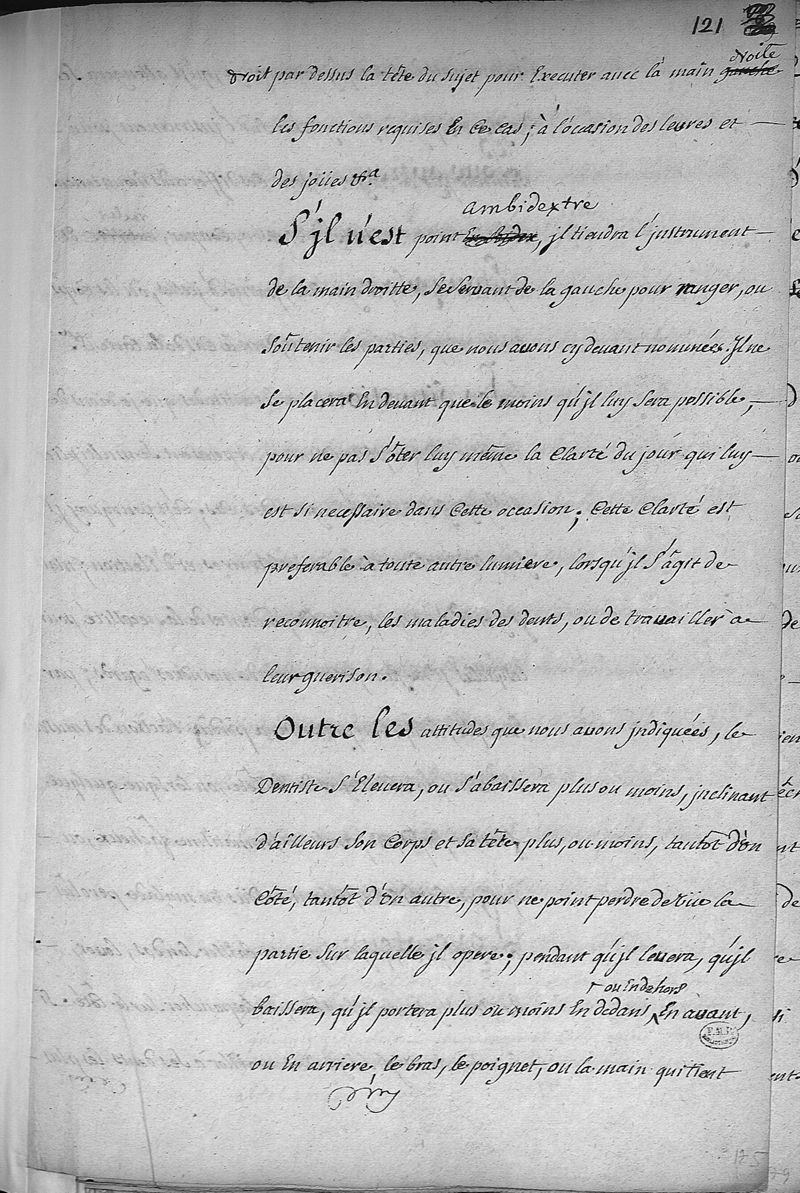 121
droite
droit par dessus la tête du sujet pour Executer avec la main gauche
les fonctions requises En Ce Cas, à l'occasion des leures et
des joües &a.
ambidextre
S'jl n'est point, jl tiendra l'jnstrument
de la main droitte, se servant de la gauche pour ranger, ou
soûtenir les parties, que nous auons cy deuant nommées. Jl ne
se placera En deuant que le moins qu'jl luy sera possible,
pour ne pas s'ôter luy même la Clarté du jour qui luy
est si necessaire dans Cette occasion; Cette Clarté est
preferable à toute autre lumiere, lorsqu'jl s'agit de
reconnoitre, les maladies des dents, ou de trauailler a
leur guerison.
Outre les attitudes que nous auons jndiquées, le
Dentiste s'Eleuera, ou s'abaissera plus ou moins, jnclinant
d'ailleurs son Corps et sa tête plus, ou moins, tantôt d'un
Côté, tantôt d'un autre, pour ne point perdre de vüe la
partie sur laquelle jl opere; pendant qu'jl leuera, qu'jl
ou En dehors
baissera, qu'jl portera plus ou moins En dedans, En auant,
ou En arriere, le bras, le poignet, ou la main qui tient